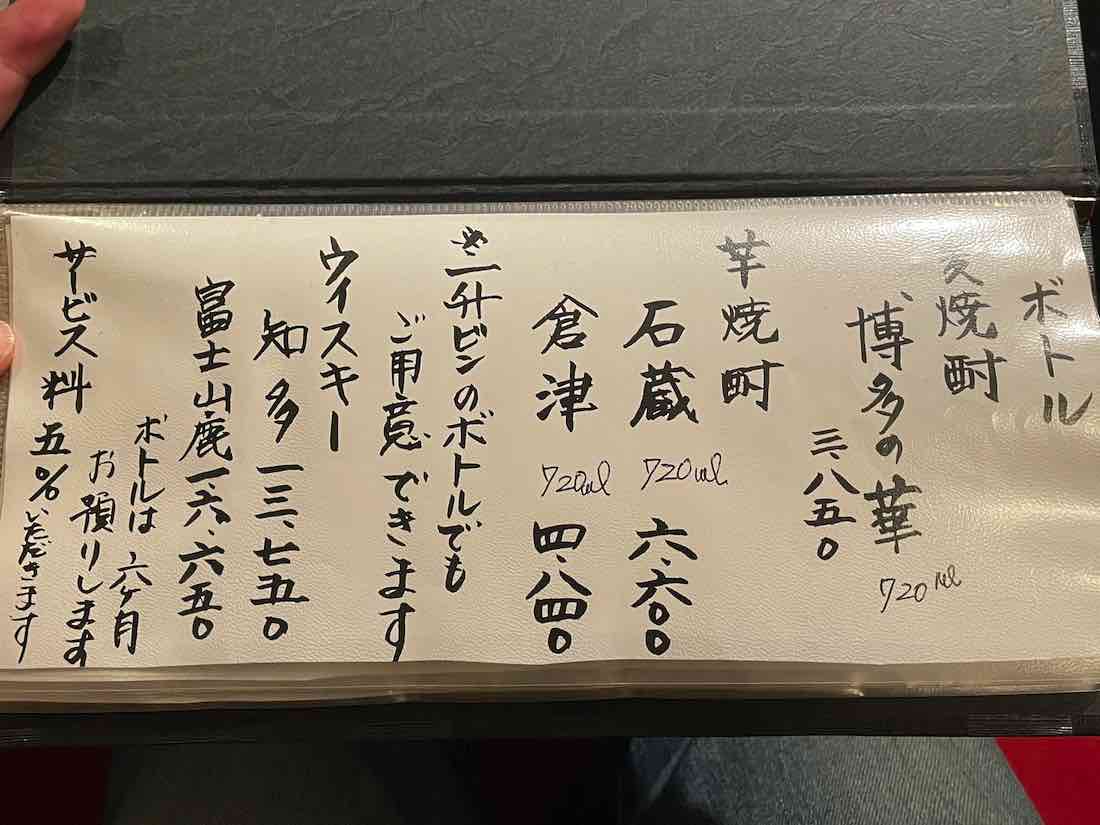 ボトル
麦焼酎
博多の華 720ml
三、八五〇
芋焼酎
石蔵 720ml 六、六〇〇
倉津 720ml 四、八四〇
※一升ビンのボトルでも
ご用意できます
ウイスキー
知多 一三、七五〇
富士山鹿 一六、六五〇
ボトルは六ヶ月
お預りします
サービス料 五%いただきます